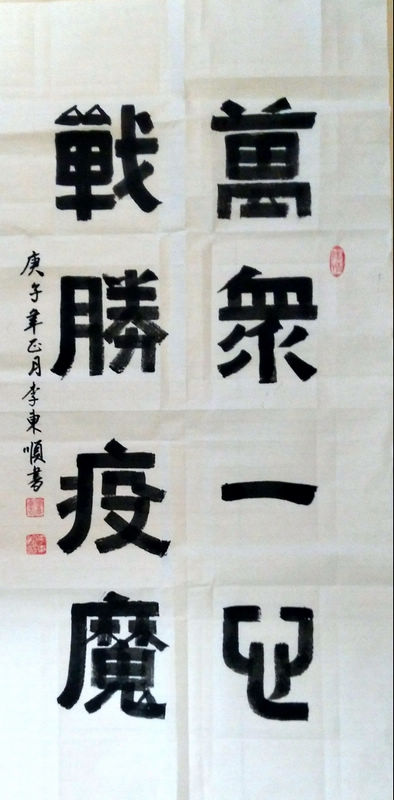 萬衆一心
戰勝疫魔
庚子年正月李東順書